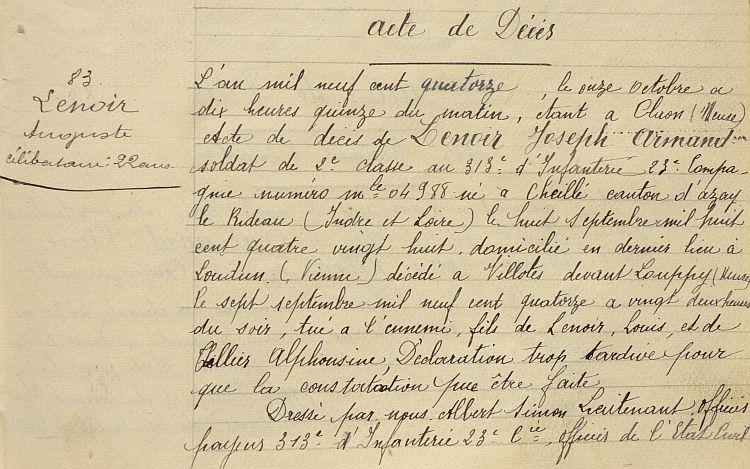 acte de Décès
83
Lenoir
Auguste
célibataire 22 ans
L'an mil neuf cent quatorze, le onze octobre a
dix heures quinze du matin, étant à Cluon (Meuse)
Acte de décès de Lenoir Joseph Armand
soldat de 2e classe au 313e d'Infanterie 23e Compa-
gnie numéro mle 04988 né a Cheillé canton d'azay
le Rideau (Indre et Loire) le huit Septembre mil huit
cent quatre vingt huit, domicilié en dernier lieu à
Loudun (Vienne) décédé a Villotes devant Louppy (Meuse)
le sept septembre mil neuf cent quatorze a vingt deux heures
du soir, tué a l'ennemi, fils de Lenoir, Louis, et de
Tellier Alphonsine, Déclaration trop tardive pour
que la constatation pue être faite
Dressé par nous Albert Simon Lieutenant, officier
payeur 313e d'Infanterie 23e Cie, officier de l'Etat Civil